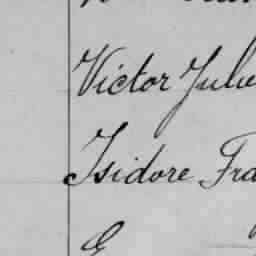 Victor Jule
Isidore Fra